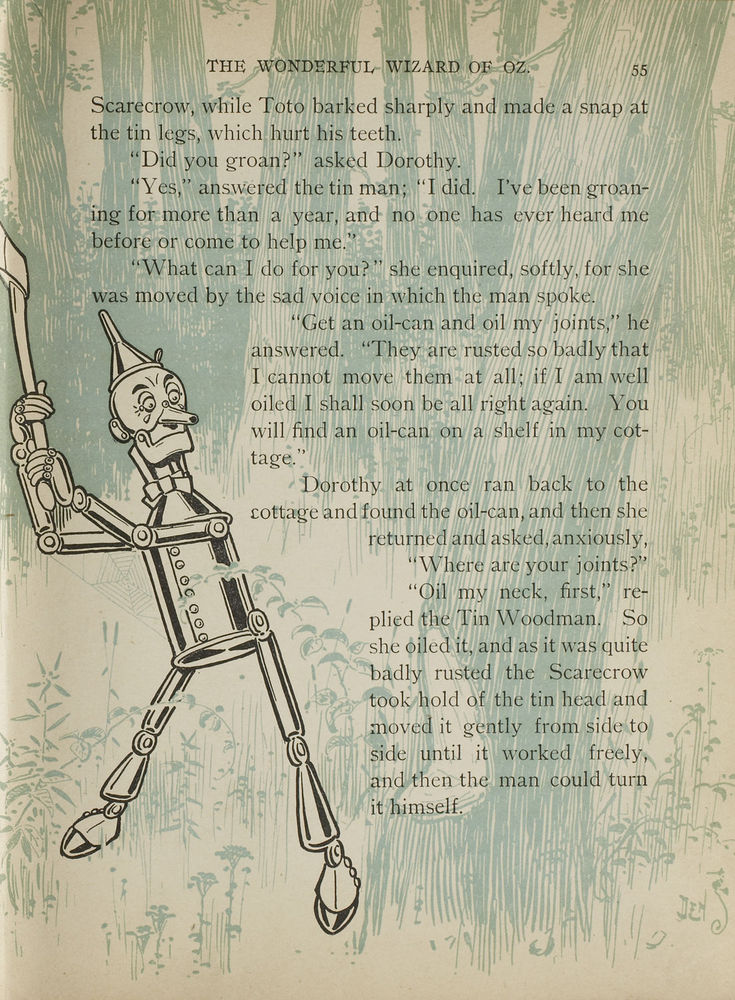 THE WONDERFUL WIZARD OF OZ. 55
Scarecrow, while Toto barked sharply and made a snap at
the tin legs, which hurt his teeth.
“Did you groan?” asked Dorothy.
“Yes,” answered the tin man; “I did. I've been groan-
ing for more than a year, and no one has ever heard me
before or come to help me.”
“What can I do for you?” she enquired, softly, for she
was moved by the sad voice in which the man spoke.
“Get an oil-can and oil my joints,” he
answered. “They are rusted so badly that
I cannot move them at all; if I am well
oiled I shall soon be all right again. You
will find an oil-can on a shelf in my cot-
tage.”
Dorothy at once ran back to the
cottage and found the oil-can, and then she
returned and asked, anxiously,
“Where are your joints?”
“Oil my neck, first,” re-
plied the Tin Woodman. So
she oiled it, and as it was quite
badly rusted the Scarecrow
took hold of the tin head and
moved it gently from side to
side until it worked freely,
and then the man could turn
it himself.